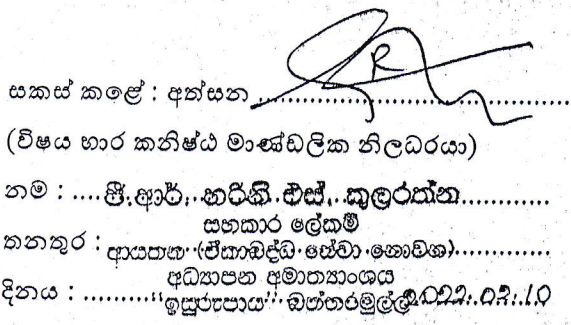 සකස් කළේ : අත්සන ..................................
(විෂය භාර කනිෂ්ඨ මාණ්ඩලික නිලධරයා)
නම : .... ජී.ආර්. හරිනි එස්. කුලරත්න ...............
සහකාර ලේකම්
තනතුර : ආයතන (ඒකාබද්ධ සේවා නොවන)
අධ්‍යාපන අමාත්‍යාංශය
දිනය : ........... "ඉසුරුපාය" බත්තරමුල්ල 2022.02.10